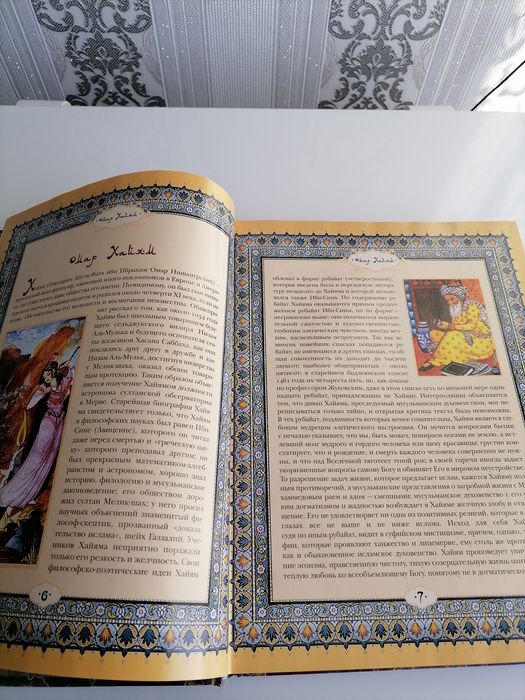 Омар Хайям
Омар Хайям
Хайям (Гиясаддин Абу-ль-Фатх ибн Ибрахим Омар Нишапурский) –
персидский поэт
в Европе и
даже общества его имени. По-видимому, он был сыном
родился около четверти XI века, если не
Обстоятельства его юности и воспитания неизвестны. Общеприня-
тен рассказ о том, как около 1042 года
Хайям был школьным товарищем буду-
щего сельджукского визиря Низам
Аль-Мулька и будущего основателя сек-
ты ассасинов Хасана Саббаха, как они
поклялись друг другу в дружбе и как
Низам Аль-Мульк, став визирем
у Мелик-шаха, оказал обоим товари-
щам протекцию. Таким образом объяс-
няется получение Хайямом должности
астронома султанской обсерватории
в Мерве. Старейшая биография Хайя-
ма свидетельствует только, что Хайям
в философских науках был равен Ибн-
Сине (Авиценне), которого он читал
даже перед смертью и «греческую нау-
ку» которого преподавал другим, он
был прекрасным математиком-алгеб-
раистом и астрономом, хорошо знал
историю, филологию и мусульманское
законоведение; его обществом доро-
жил султан Мелик-шах; у него просил
научных объяснений знаменитый фи-
лософ-скептик, прозванный «доказа-
тельство ислама», шейх Газзалий. Уче-
ников Хайяма неприятно поражали
только его резкость и желчность. Свои
философско-поэтические идеи Хайям
6
Омар Хайям
облекал в форму рубайат (четверостиший),
которая введена была в персидскую литера-
туру незадолго до Хайяма и которой пользо-
вался также Ибн-Сина. По содержанию ру-
байат Хайяма оказываются прямым продол-
жением рубайат Ибн-Сины, но по форме –
гораздо выше: они отличаются выразитель-
ной сжатостью и художественностью,
глубоким элегическим чувством, иногда мет-
ким, насмешливым остроумием. Так как во
многих новейших списках попадаются ру-
байат, не имеющиеся в других списках, то об-
щая совокупность их доходит до тысячи
двухсот; наиболее общепринято – около
пятисот; в старейшем бодлеянском списке
1461 года их четыреста пять, но, как показа-
но профессором Жуковским, даже в этом списке есть по меньшей мере один-
надцать рубайат, принадлежащих не Хайяму. Интерполяции объясняются
тем, что диван Хайяма, преследуемый мусульманским духовенством, мог пе-
реписываться только тайно, и открытая критика текста была невозможна.
В тех рубайат, подлинность которых менее сомнительна, Хайям является глу-
боким мудрецом элегического настроения. Он мучится вопросами бытия;
с печалью указывает, что мы, быть может, попираем ногами не землю, а истлев-
ший мозг мудрого и гордого человека или щеку красавицы; грустно кон-
статирует, что и рождение, и смерть каждого человека совершенно не нуж-
ны, и что над Вселенной тяготеет тупой рок; в своей горечи иногда задает
укоризненные вопросы самому Богу и обвиняет Его в мировом неустройстве.
То разрешение задач жизни, которое предлагает ислам, кажется Хайяму полным
противоречий, а мусульманские представления о загробной жизни с Му-
хаммедовым раем и адом – смешными; мусульманское духовенство с его
догматизмом и жадностью возбуждает в Хайяме желчную злобу и отвра-
щение. Его не удовлетворяет ни одна из позитивных религий, которые в его
глазах все не выше и не ниже ислама. Исход для себя Хайям,
судя по иным рубайат, видит в суфийском мистицизме, причем, однако, су-
фии, которые применяют ханжество и лицемерие, ему столь же противны,
как и обыкновенное исламское духовенство. Хайям проповедует уничто-
жение эгоизма, нравственную чистоту, тихую созерцательную жизнь
теплую любовь ко всеобъемлющему Богу, понятому не в догматическом
7